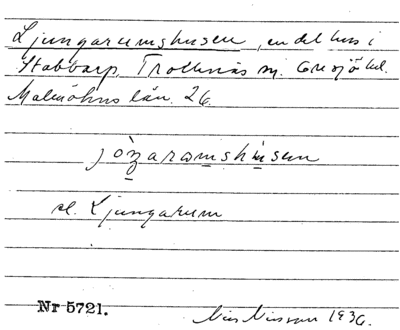 Ljungarumshusen, en del hus i
Stabbarp, Trollenäs sn. Onsjö hd.
Malmöhus län. 26.
jòŋaramshusen
se. Ljungarum
Nr 5721.
Nils Nilsson 1936.